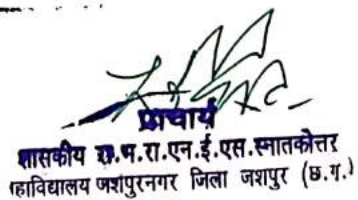 प्राचार्य
शासकीय रा.भ.रा.एन.ई.एस.स्नातकोत्तर
महाविद्यालय जशपुरनगर जिला जशपुर (छ.ग.)